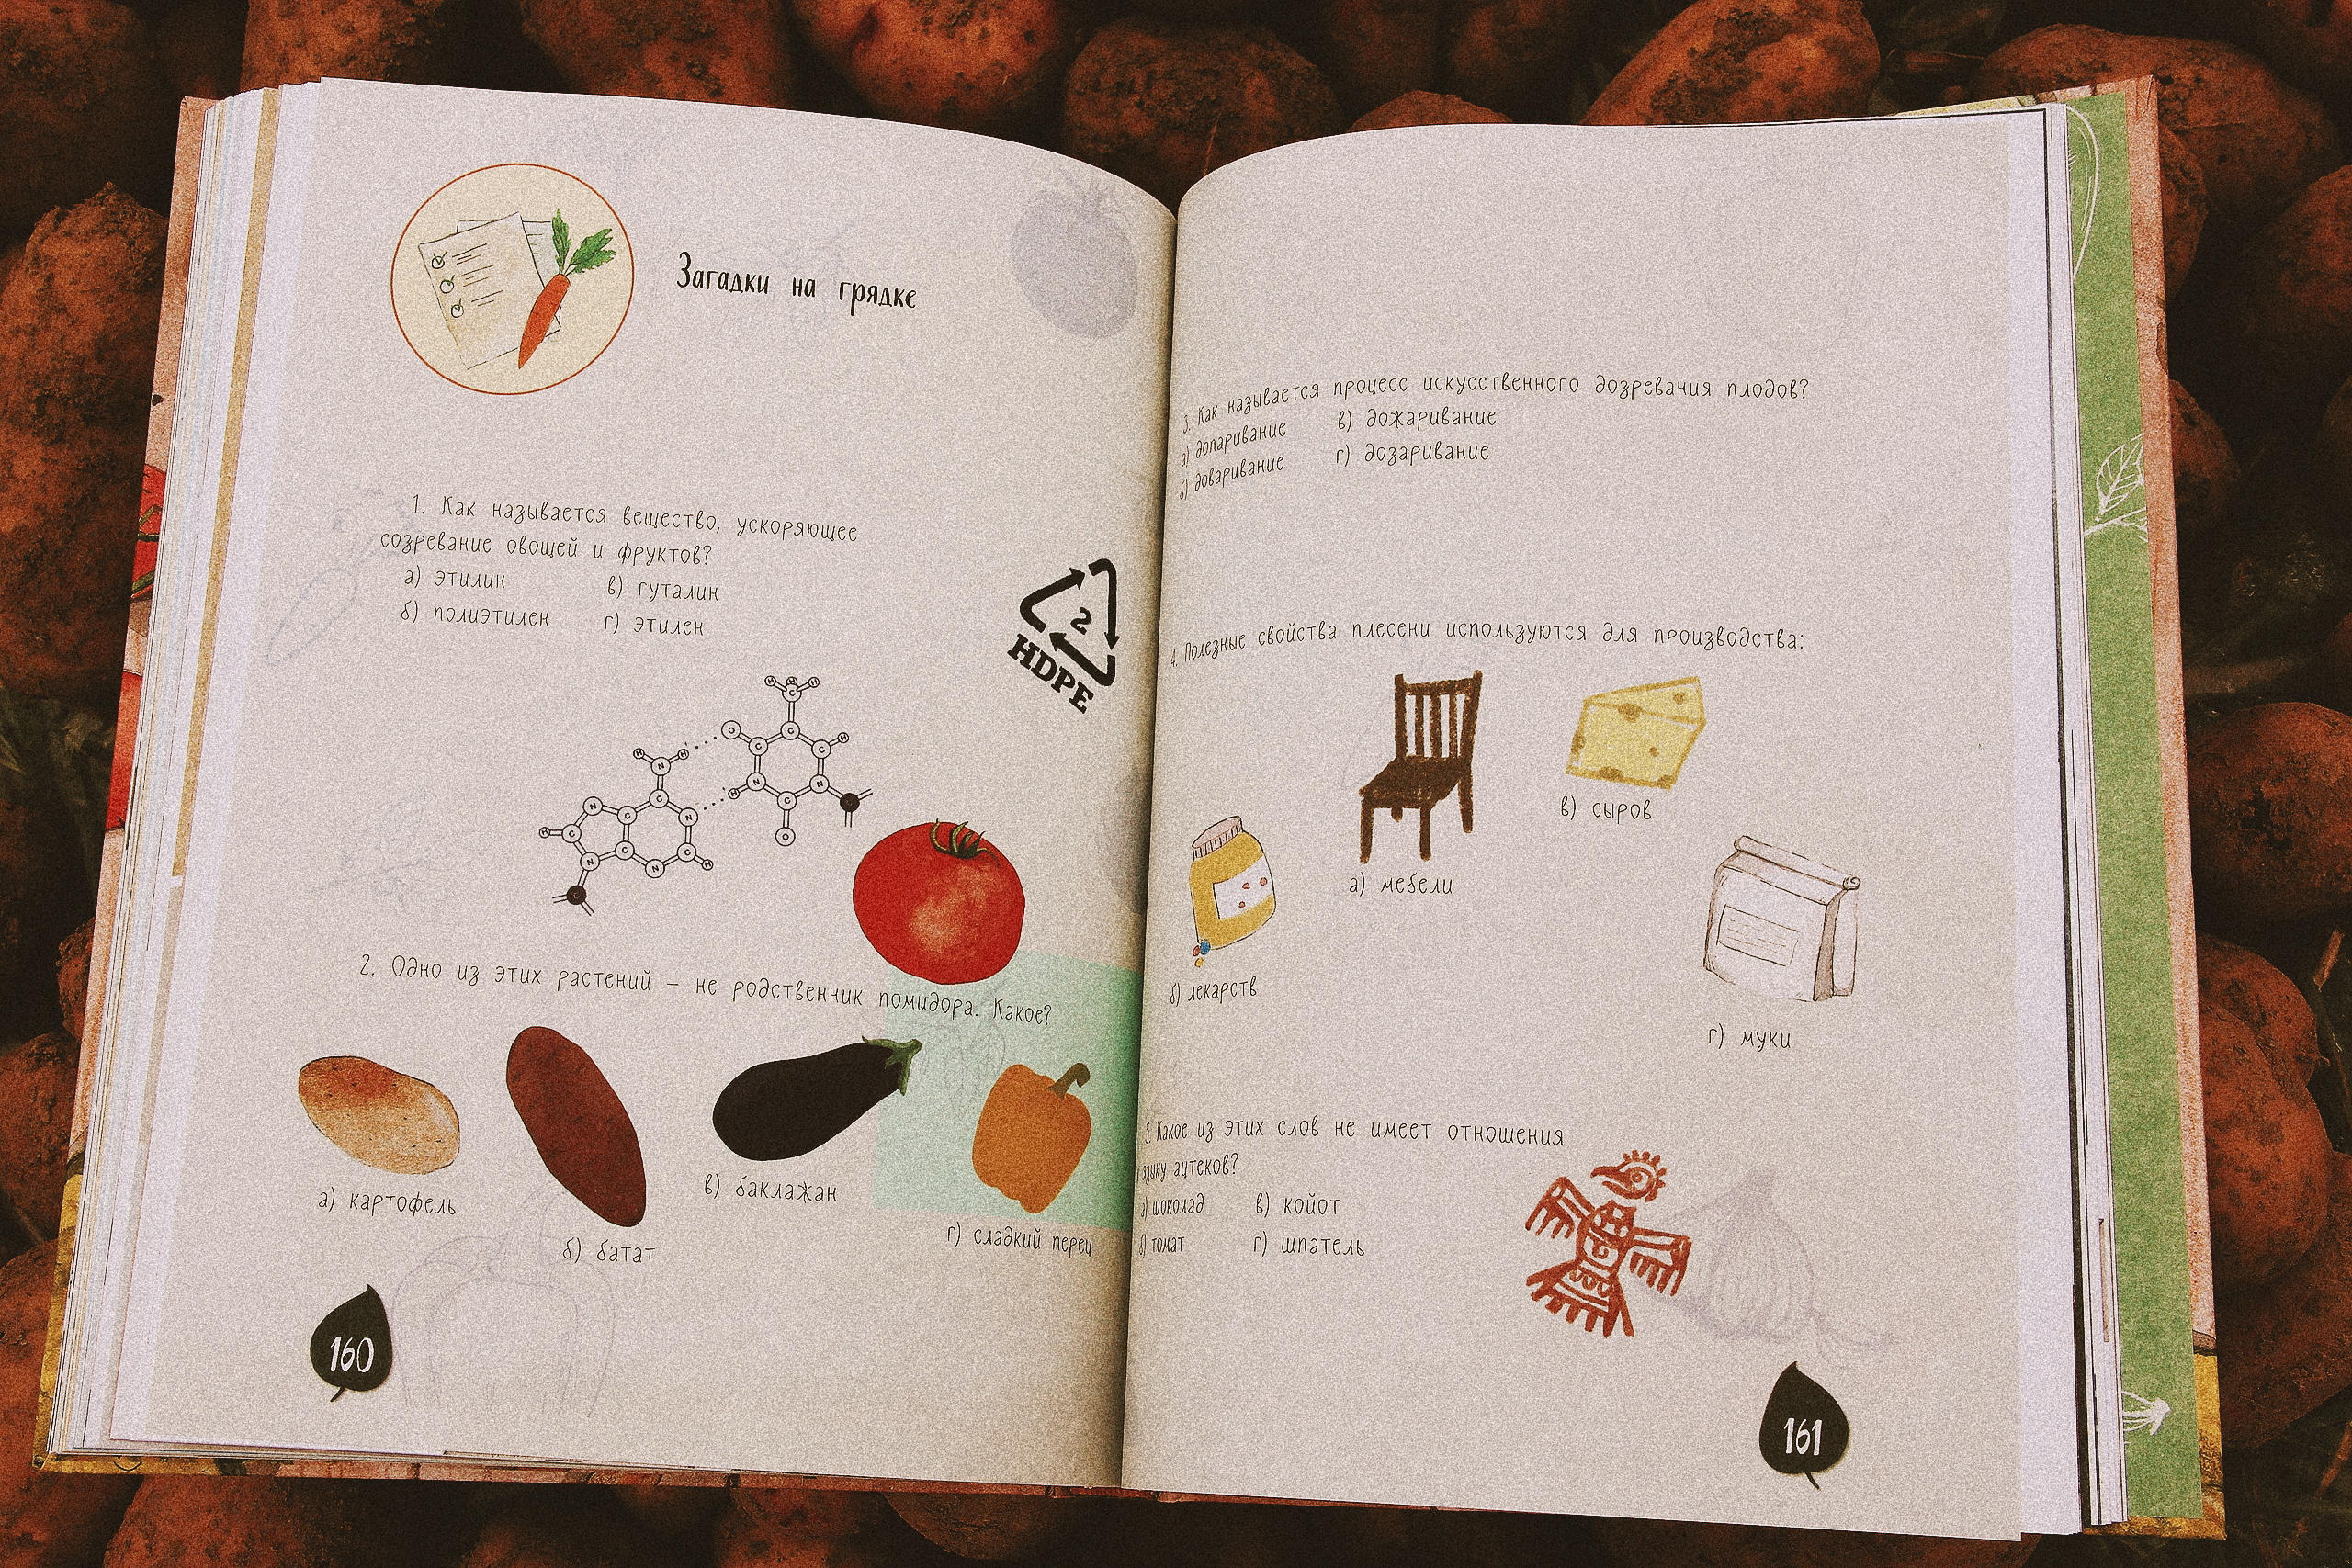 Загадки на грядке
1. Как называется вещество, ускоряющее
созревание овощей и фруктов?
а) этилин в) гуталин
б) полиэтилен г) этилен
2
HDPE
2. Одно из этих растений – не родственник помидора. Какое?
а) картофель
б) батат
в) баклажан
г) сладкий перец
160
3. Как называется процесс искусственного дозревания плодов?
а) допаривание в) дожаривание
б) доваривание г) дозаривание
4. Полезные свойства плесени используются для производства:
а) мебели
б) лекарств
в) сыров
г) муки
5. Какое из этих слов не имеет отношения
языку ацтеков?
а) шоколад в) койот
б) томат г) шпатель
161